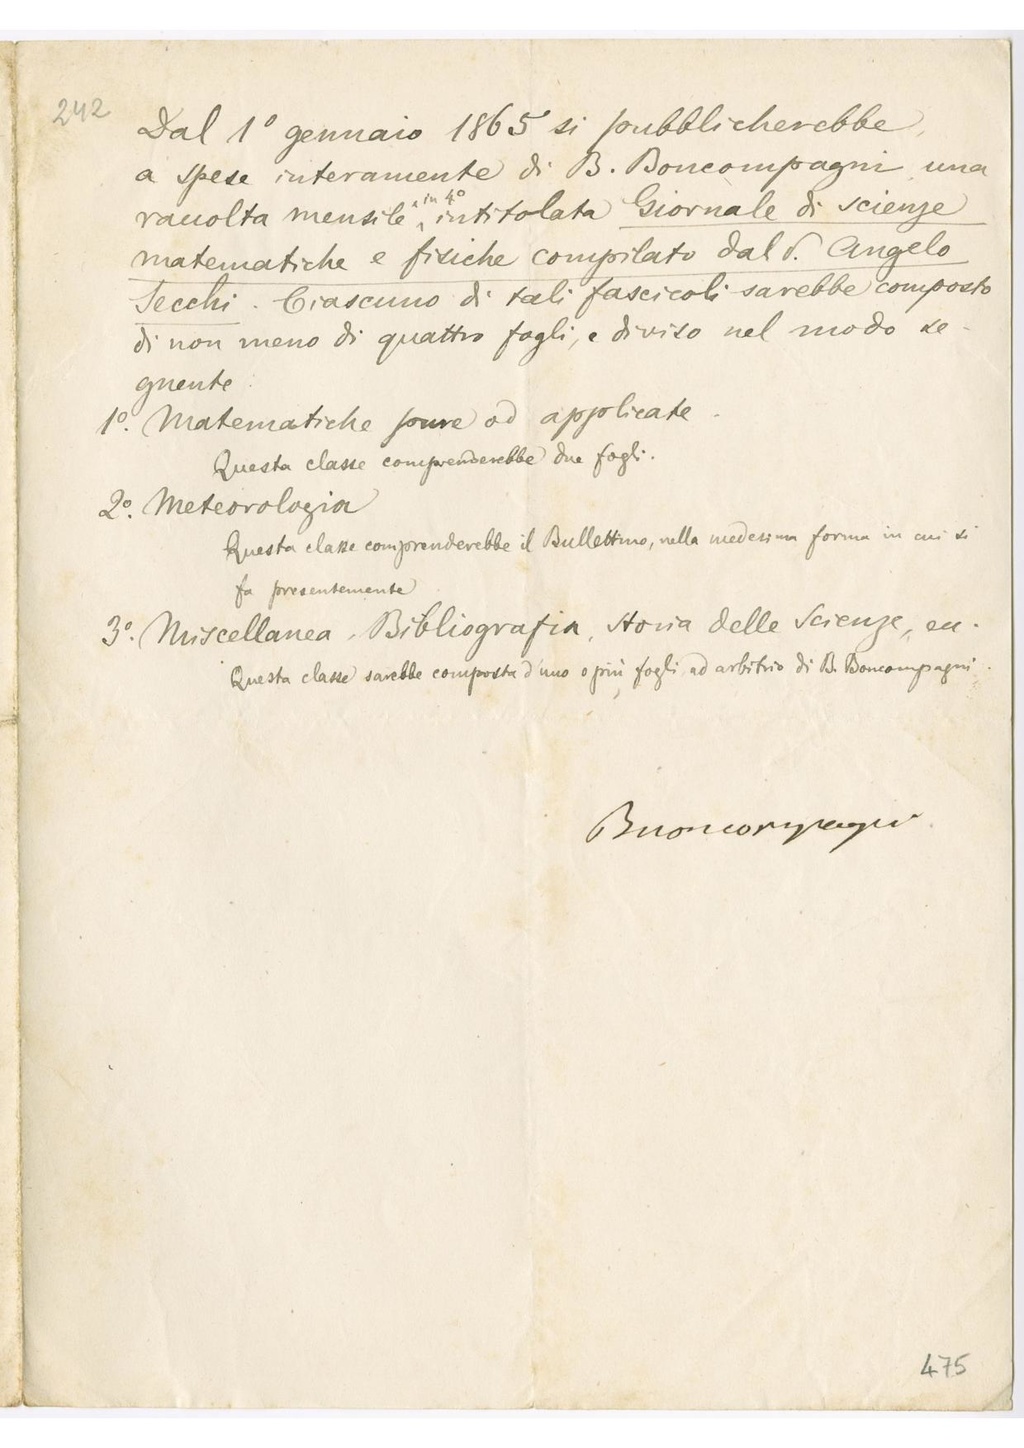 242
Dal 1º gennaio 1865 si pubblicherebbe,
a spese interamente di B. Boncompagni, una
raccolta mensile in 4º intitolata Giornale di scienze
matematiche e fisiche compilato dal P. Angelo
Secchi. Ciascuno di tali fascicoli sarebbe composto
di non meno di quattro fogli, e diviso nel modo se-
guente:
1º. Matematiche pure od applicate.
Questa classe comprenderebbe due fogli.
2º. Meteorologia
Questa classe comprenderebbe il Bullettino, nella medesima forma in cui si
fa presentemente
3º. Miscellanea, Bibliografia, Storia delle Scienze, ec.
Questa classe sarebbe composta d'uno o più fogli ad arbitrio di B. Boncompagni.
Buoncompagni
475